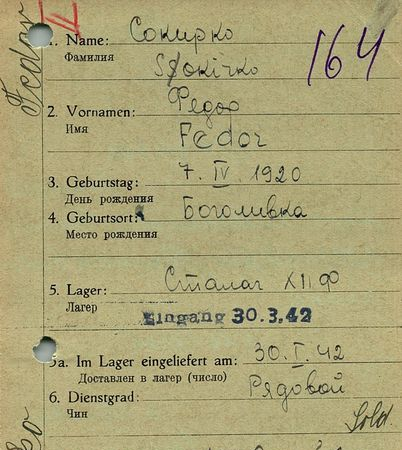 Fedor
II
1. Name: Сокирко
Фамилия
Sokirko
164
2. Vornamen: Федор
Имя
Fedor
3. Geburtstag: 7. IV. 1920
День рождения
4. Geburtsort: Боголивка
Место рождения
5. Lager: Сталаг XII Ф
Лагер
Eingang 30.3.42
5a. Im Lager eingeliefert am: 30. I. 42
Доставлен в лагер (число)
6. Dienstgrad: Рядовой
Чин
Sold.